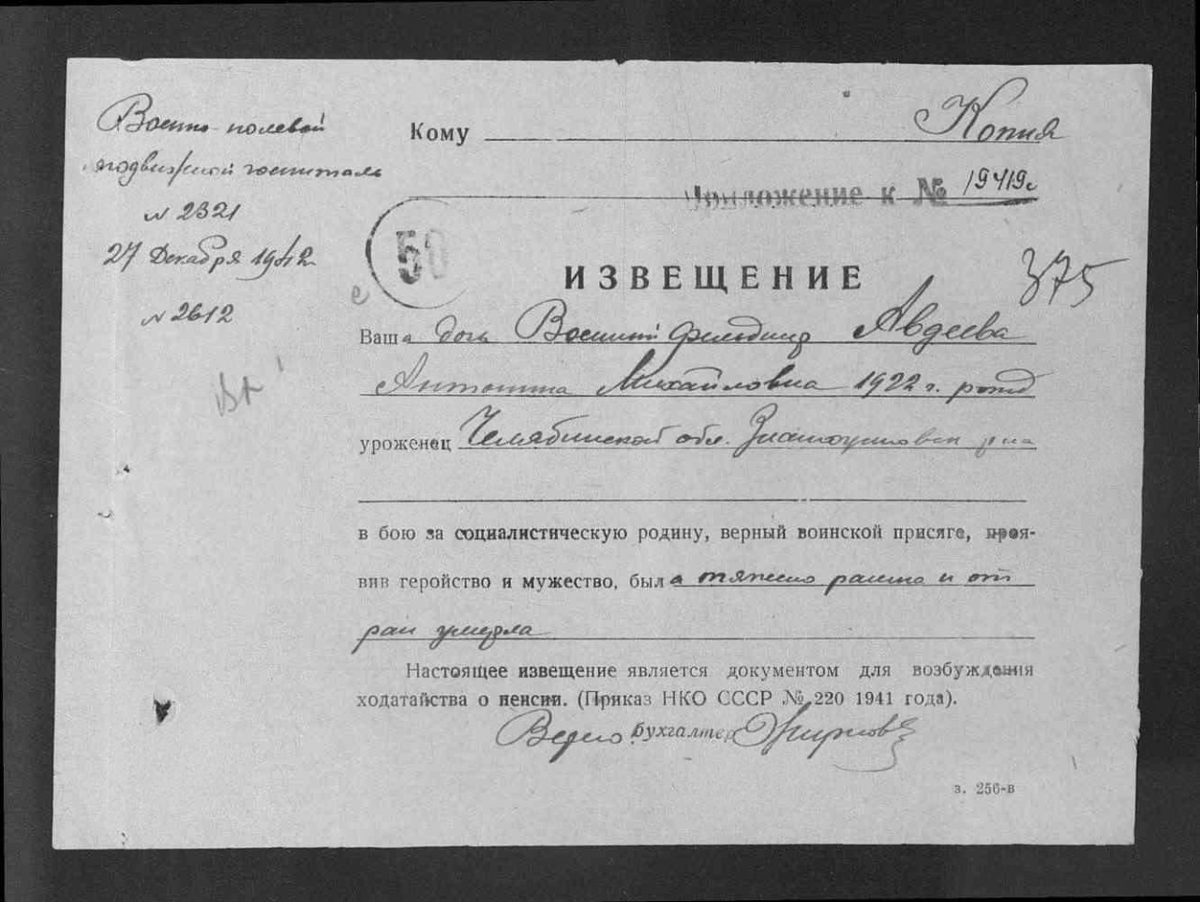 Военно-полевой
подвижной госпиталь
№ 2321
27 Декабря 1942
№ 2612
Кому Копия
Приложение к № 19419с
50
ИЗВЕЩЕНИЕ
375
Ваша дочь Военный фельдшер Авдеева
Антонина Михайловна 1922 г. рожд
уроженец Челябинской обл. Златоустовск р-на
в бою за социалистическую родину, верный воинской присяге, проя-
вив геройство и мужество, была тяжело ранена и от
ран умерла
Настоящее извещение является документом для возбуждения
ходатайства о пенсии. (Приказ НКО СССР № 220 1941 года).
Верно: бухгалтер
з. 256-в